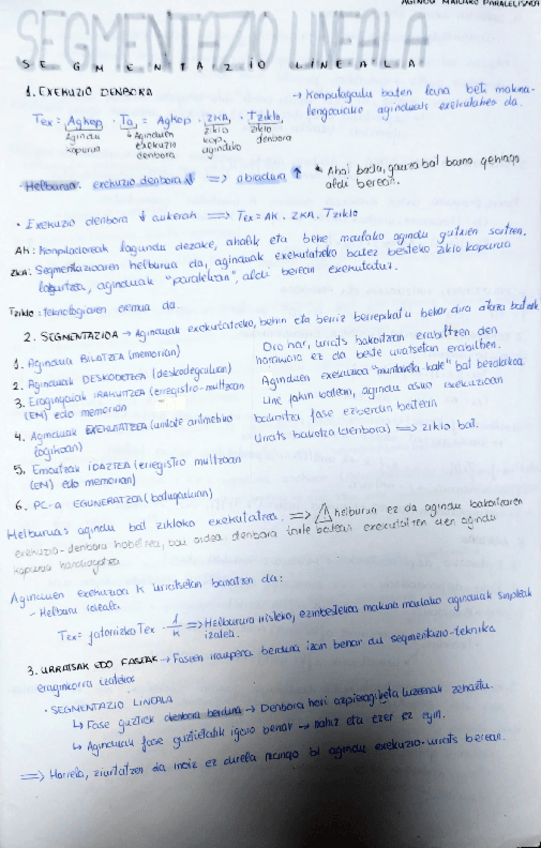 AGINDU MAILAKO PARALELISMOA
SEGMENTAZIO LINEALA
SEGMENTAZIO LINEALA
1. EXEKUZIO DENBORA
→ Konputagailu baten lana beti makina-
lengoaiako aginduak exekutatzea da.
Tex = Agkop · Ta = Agkop · ZKA · Tziklo
Agindu kopurua
Aginduen exekuzio denbora
ziklo kop. aginduko
ziklo denbora
Helburua: exekuzio denbora ↓ ⟹ abiadura ↑
* Ahal bada, gauza bat baino gehiago
aldi berean.
· Exekuzio denbora ↓ aukerak ⟹ Tex = Ak . ZKA . Tziklo
Ak: Konpiladoreak lagundu dezake, ahalik eta behe mailako agindu gutxien sortzen.
ZKA: Segmentazioaren helburua da, aginduak exekutatzeko batez besteko ziklo kopurua
laburtzea, aginduak "paraleloan", aldi berean exekutatuz.
Tziklo: teknologiaren eremua da.
2. SEGMENTAZIOA → Aginduak exekutatzeko, behin eta berriz errepikatu behar dira ataza batzuk
1. Agindua BILATZEA (memorian)
2. Aginduak DESKODETZEA (deskodegailuan)
3. Eragingaiak IRAKURTZEA (erregistro-multzoan
(EM) edo memorian)
4. Aginduak EXEKUTATZEA (unitate aritmetiko
logikoan)
5. Emaitzak IDAZTEA (erregistro multzoan
(EM) edo memorian)
6. PC-a EGUNERATZEA (batugailuan)
Oro har, urrats bakoitzean erabiltzen den
hardwarea ez da beste urratsetan erabiltzen.
Aginduen exekuzioa "muntaketa-kate" bat bezalakoa
Une jakin batean, agindu asko exekuzioan
bakoitza fase ezberdin batean
Urrats bakoitza (denbora) ⟹ ziklo bat.
Helburua: agindu bat zikloko exekutatzea. ⟹ ⚠ helburua ez da agindu bakoitzaren
exekuzio-denbora hobetzea, bai ordea denbora tarte batean exekutatzen den agindu
kopurua handiagotzea.
Aginduen exekuzioa k urratsetan banatzen da:
- Helburu ideala:
Tex = jatorrizko Tex · 1/k ⟹ Helburura iristeko, ezinbestekoa makina mailako aginduak sinpleak
izatea.
3. URRATSAK EDO FASEAK → Faseen iraupena berdina izan behar du segmentazio-teknika
eraginkorra izateko
· SEGMENTAZIO LINEALA
↳ Fase guztiek denbora berdina → Denbora hori azpieragiketa luzeenak zehaztu.
↳ Aginduak fase guztietatik igaro behar → nahiz eta ezer ez egin.
⟹ Horrela, ziurtatzen da inoiz ez direla izango bi agindu exekuzio-urrats berean.